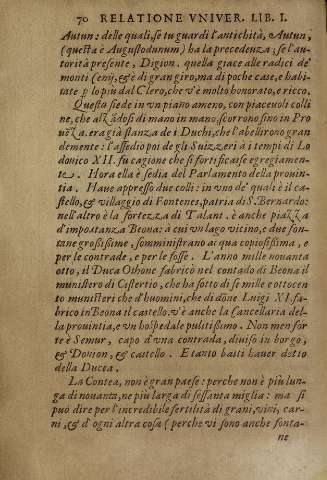 70 RELATIONE VNIVER. LIB. I.
Autun: delle quali, se tu guardi l'antichità, Autun,
(questa è Augustodunum) ha la precedenza; se l'au
torità presente, Digion. quella giace alle radici de'
monti (enij, & è di gran giro, ma di poche case, e habi
tate p lo più dal Clero, che v'è molto honorato, e ricco.
Questa siede in vn piano ameno, con piaceuoli colli
ne, che alzādosi di mano in mano, scorrono sino in Pro
uēza. era già stanza de i Duchi, che l'abellirono gran
demente: l'assedio poi de gli Suizzeri à i tempi di Lo
douico XII. fu cagione che si fortificasse egregiamen-
te. Hora ella è sedia del Parlamento della prouin-
tia. Haue appresso due colli: in vno de' quali è il ca-
stello, & villaggio di Fontenes, patria di S. Bernardo:
nell'altro è la fortezza di Talant. è anche piazza
d'importanza Beona: a cui vn lago vicino, e due fon-
tane grossissime, somministrano acqua copiosissima, e
per le contrade, e per le fosse. L'anno mille nouanta
otto, il Duca Othone fabricò nel contado di Beona il
munistero di Cistertio, che ha sotto di se mille ottocen
to munisteri che d'huomini, che di dōne Luigi XI. fa-
bricò in Beona il castello. v'è anche la Cancellaria del-
la prouintia, e vn hospedale pulitissimo. Non men for
te è Semur, capo d'vna contrada, diuiso in borgo,
& Donion, & castello. E tanto basti hauer detto
della Ducea.
La Contea, non è gran paese: perche non è più lun-
ga di nouanta, ne più larga di sessanta miglia: ma si
può dire per l'incredibile fertilità di grani, vini, car-
ni, & d'ogni altra cosa (perche vi sono anche fonta-
ne